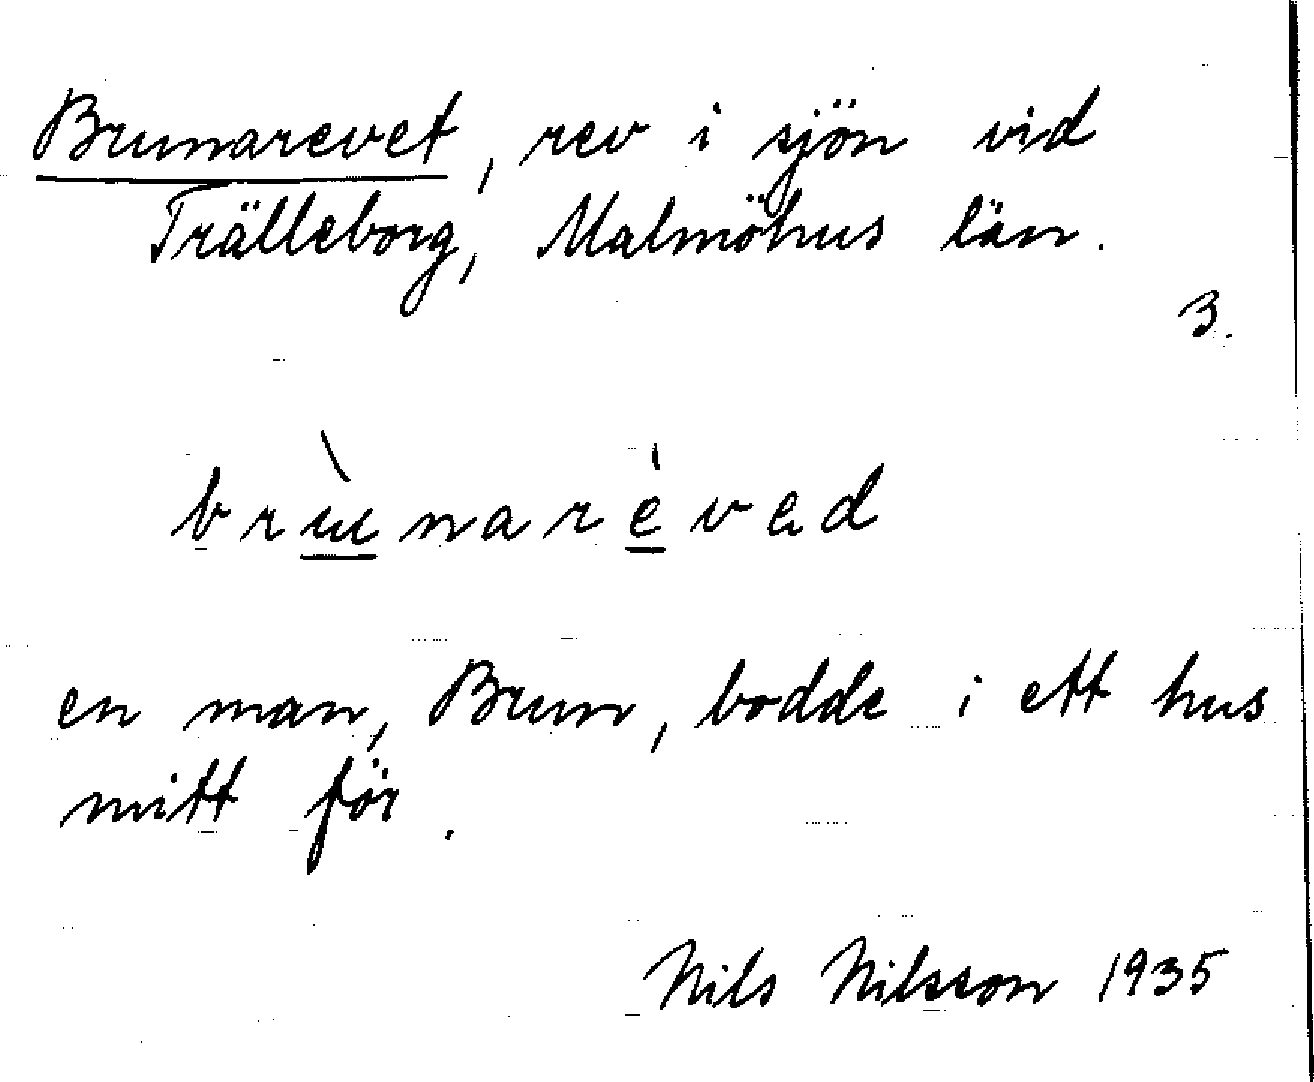 Brunarevet, rev i sjön vid
Trälleborg, Malmöhus län.
3.
brùnarévad
en man, Brun, bodde i ett hus
mitt för.
Nils Nilsson 1935